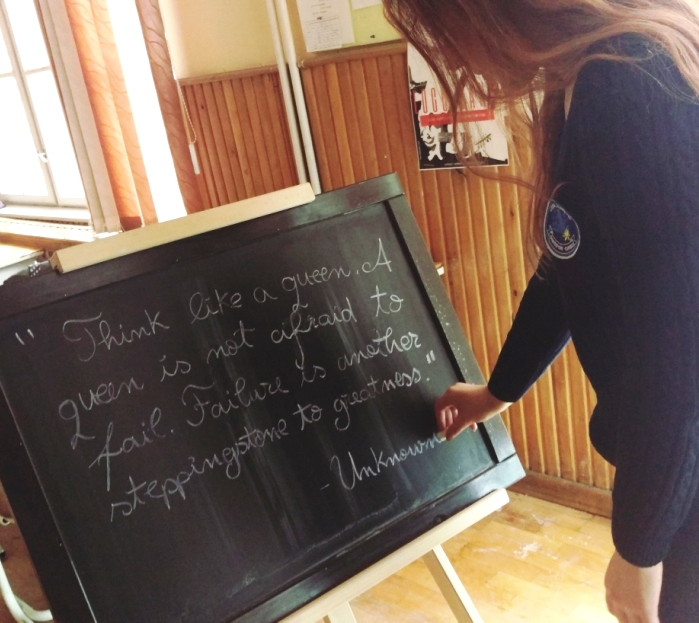 " Think like a queen. A
queen is not afraid to
fail. Failure is another
steppingstone to greatness."
-Unknown